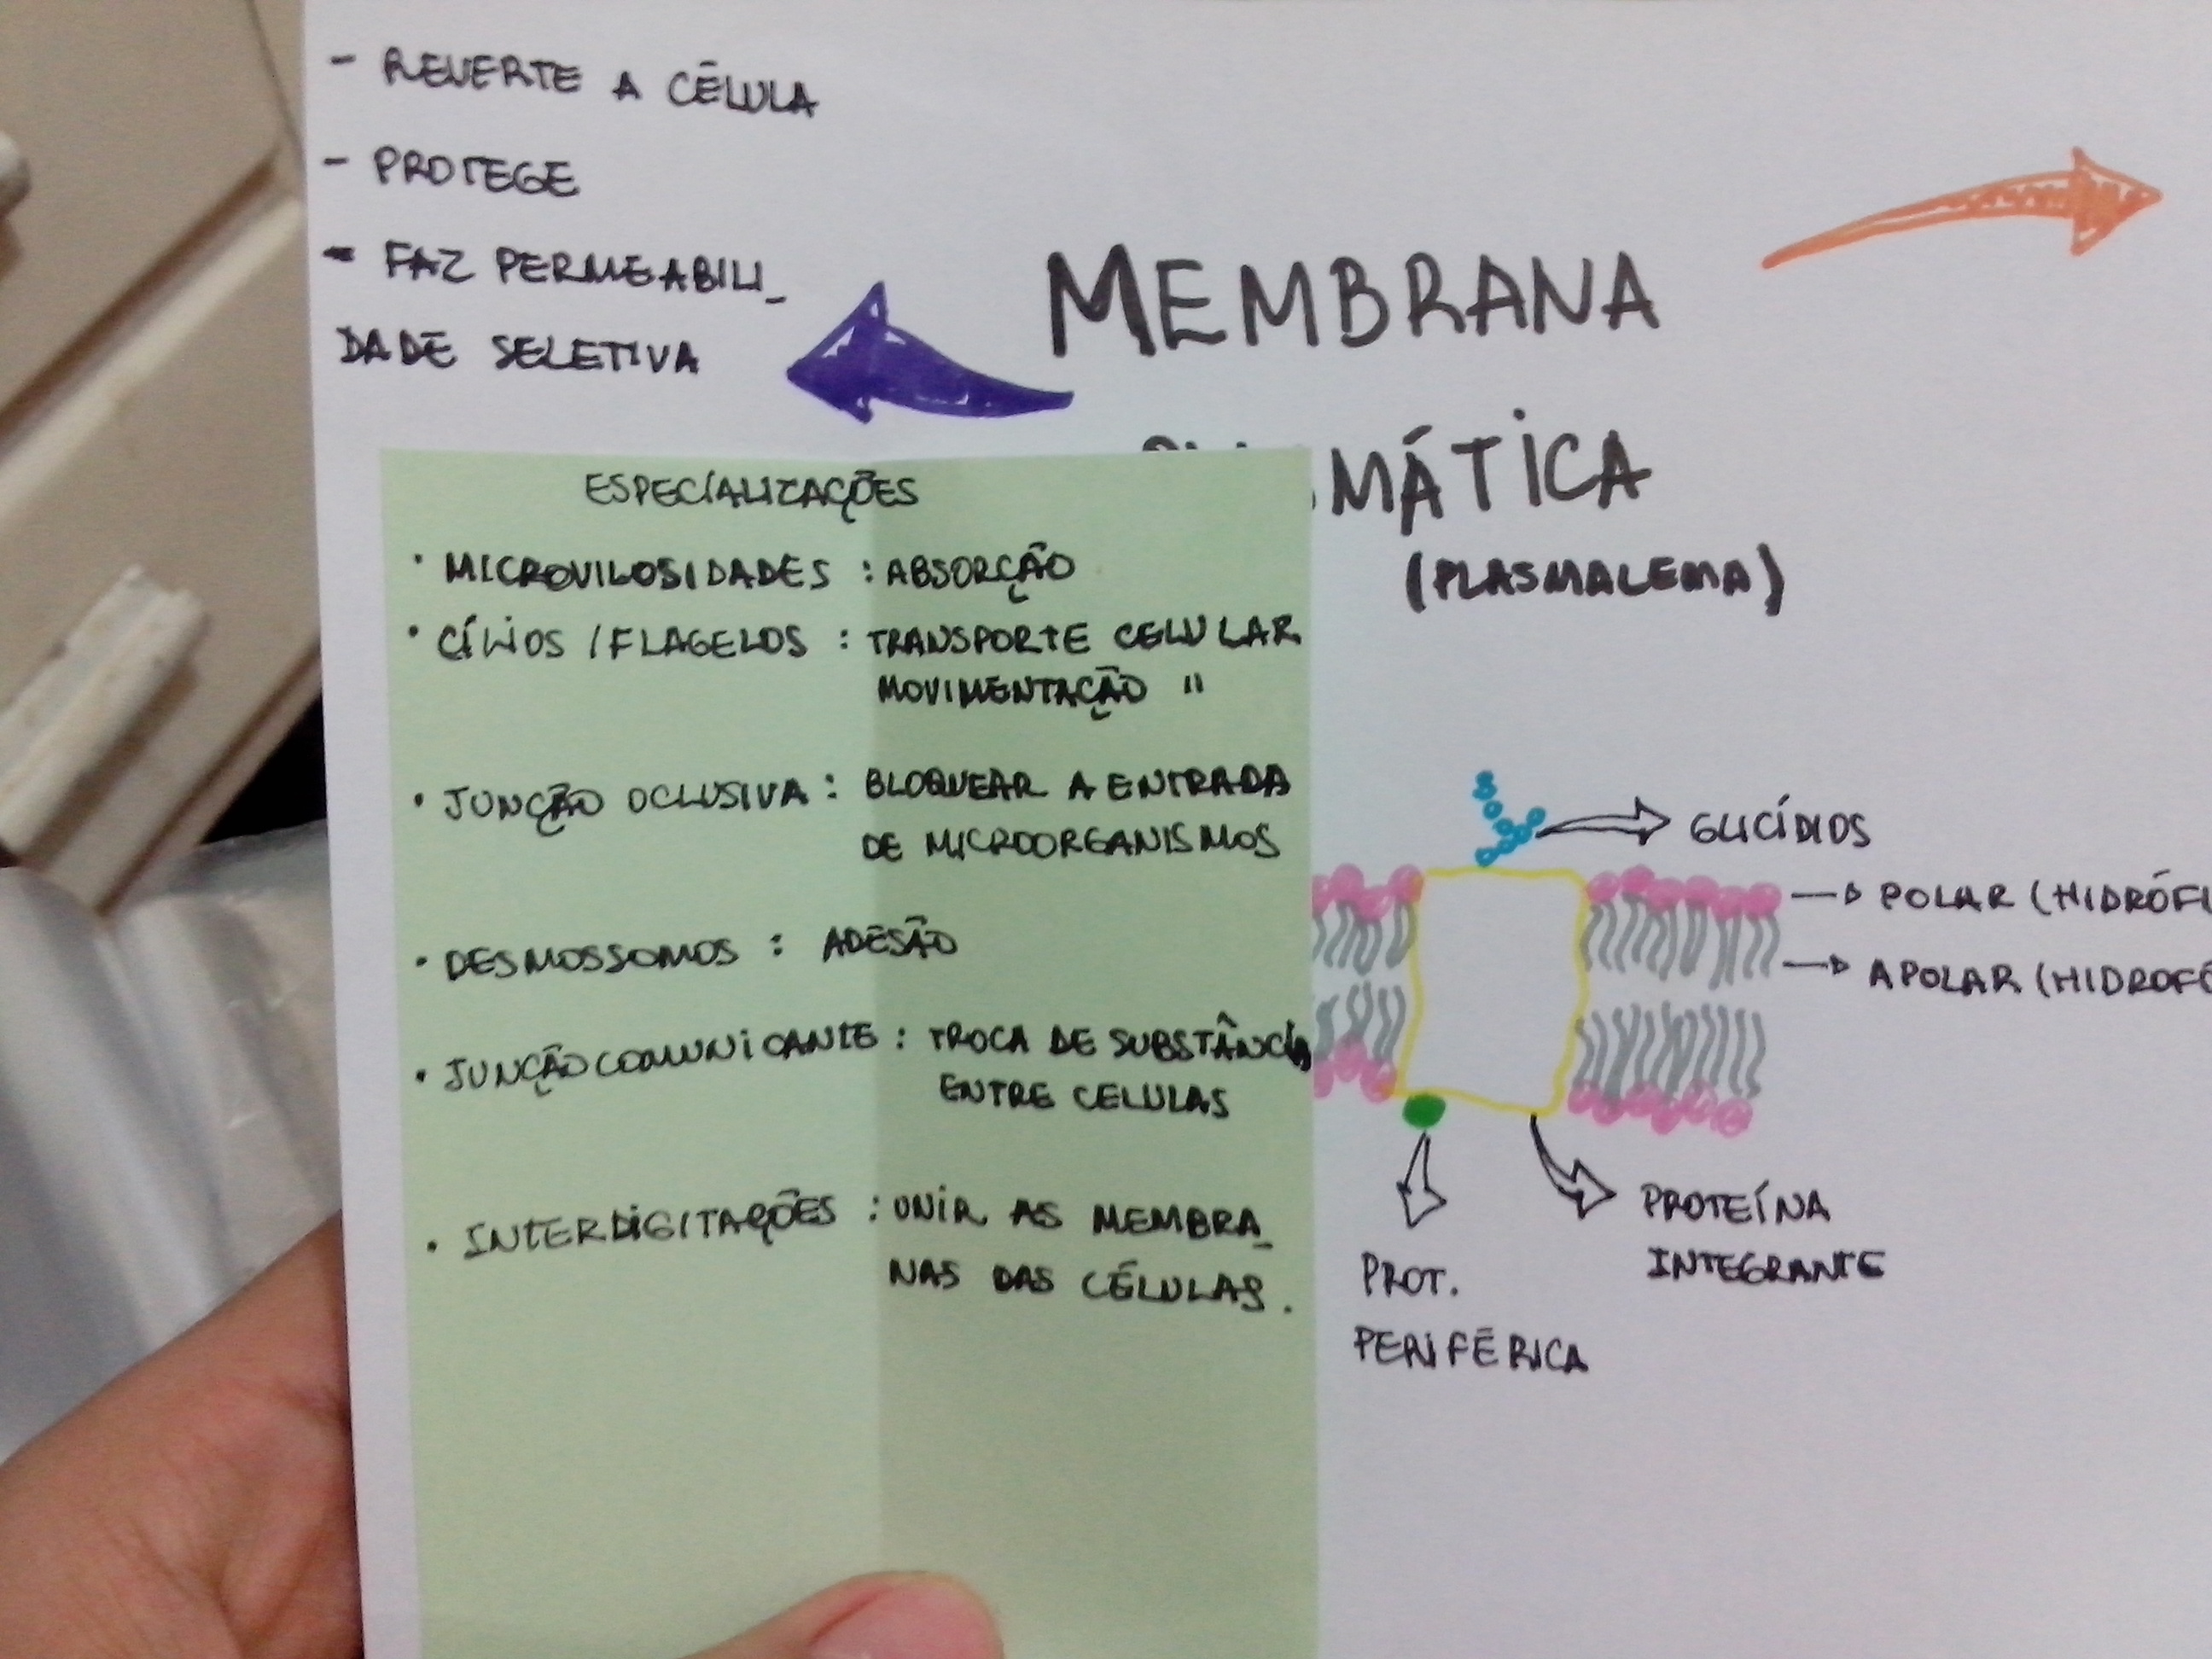 - REVERTE A CÉLULA
- PROTEGE
- FAZ PERMEABILI_
DADE SELETIVA
MEMBRANA
MÁTICA
(PLASMALEMA)
ESPECIALIZAÇÕES
• MICROVILOSIDADES : ABSORÇÃO
• CÍLIOS / FLAGELOS : TRANSPORTE CELULAR
MOVIMENTAÇÃO "
• JUNÇÃO OCLUSIVA : BLOQUEAR A ENTRADA
DE MICROORGANISMOS
• DESMOSSOMOS : ADESÃO
• JUNÇÃO COMUNICANTE : TROCA DE SUBSTÂNCIA
ENTRE CELULAS
• INTERDIGITAÇÕES : UNIR AS MEMBRA_
NAS DAS CÉLULAS.
GLICÍDIOS
POLAR (HIDRÓFI
APOLAR (HIDROFÓ
PROTEÍNA
INTEGRANTE
PROT.
PERIFÉRICA